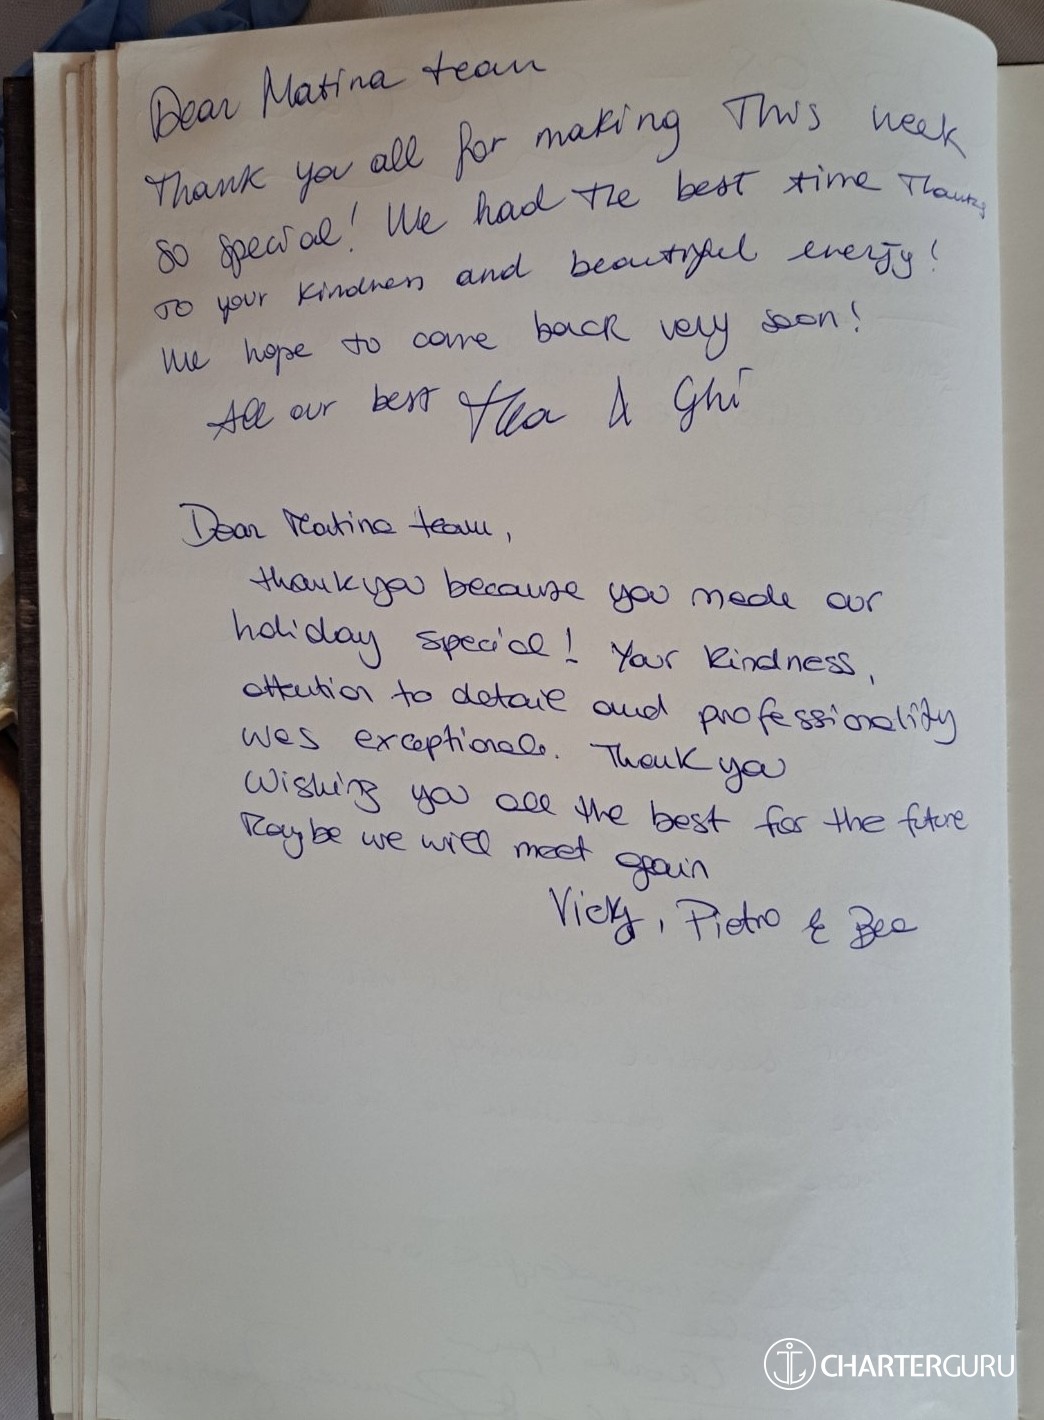 Dear Matina team
Thank you all for making This week
so special! We had the best time Thanks
to your kindness and beautiful energy!
We hope to come back very soon!
All our best Tea & Ghi
Dear Matina team,
thank you because you made our
holiday special! Your kindness,
attention to detail and professionality
was exceptional. Thank you
Wishing you all the best for the future
Maybe we will meet again
Vicky, Pietro & Bea
CHARTERGURU